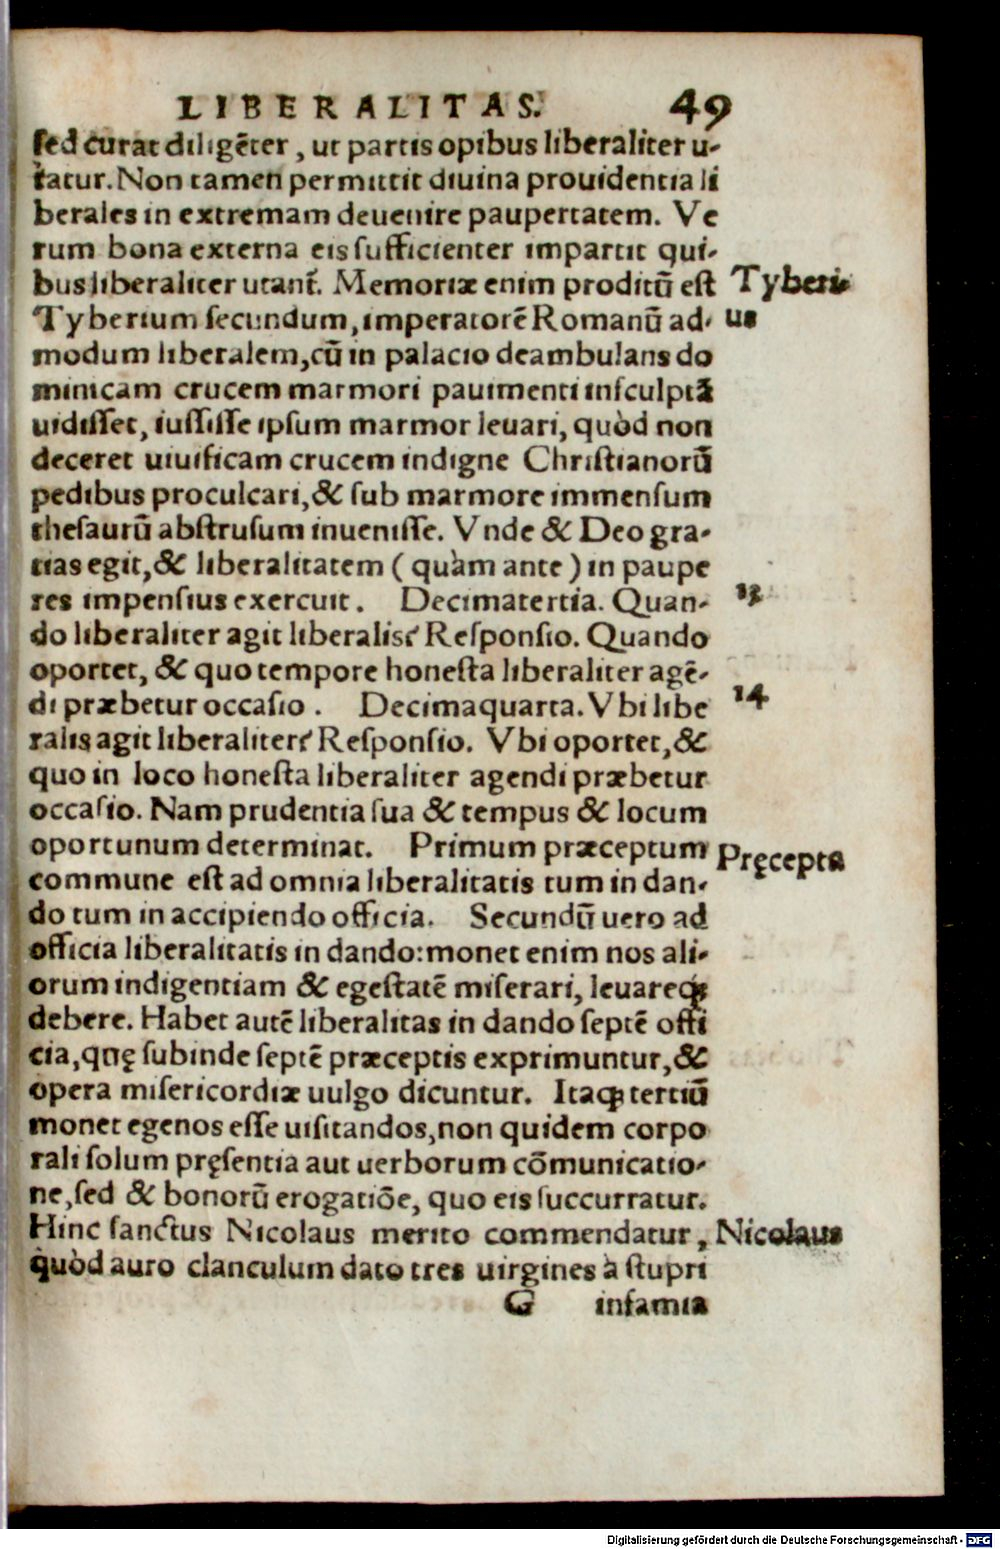 LIBERALITAS. 49
sed curat diligẽter, ut partis opibus liberaliter u-
tatur. Non tamen permittit diuina prouidentia li
berales in extremam deuenire paupertatem. Ve
rum bona externa eis sufficienter impartit qui-
bus liberaliter utant̃. Memoriæ enim proditũ est
Tyberi-
Tyberium secundum, imperatorẽ Romanũ ad-
us
modum liberalem, cũ in palacio deambulans do
minicam crucem marmori pauimenti insculptã
uidisset, iussisse ipsum marmor leuari, quòd non
deceret uiuificam crucem indigne Christianorũ
pedibus proculcari, & sub marmore immensum
thesaurũ abstrusum inuenisse. Vnde & Deo gra-
tias egit, & liberalitatem (quàm ante) in paupe
res impensius exercuit. Decimatertia. Quan-
13
do liberaliter agit liberalis? Responsio. Quando
oportet, & quo tempore honesta liberaliter agẽ-
di præbetur occasio. Decimaquarta. Vbi libe
14
ralis agit liberaliter? Responsio. Vbi oportet, &
quo in loco honesta liberaliter agendi præbetur
occasio. Nam prudentia sua & tempus & locum
oportunum determinat. Primum præceptum
Pręcepta
commune est ad omnia liberalitatis tum in dan-
do tum in accipiendo officia. Secundũ uero ad
officia liberalitatis in dando: monet enim nos ali-
orum indigentiam & egestatẽ miserari, leuareq́;
debere. Habet autẽ liberalitas in dando septẽ offi
cia, quę subinde septẽ præceptis exprimuntur, &
opera misericordiæ uulgo dicuntur. Itaq; tertiũ
monet egenos esse uisitandos, non quidem corpo
rali solum pręsentia aut uerborum cõmunicatio-
ne, sed & bonorũ erogatiõe, quo eis succurratur.
Hinc sanctus Nicolaus merito commendatur,
Nicolaus
quòd auro clanculum dato tres uirgines à stupri
G infamia
Digitalisierung gefördert durch die Deutsche Forschungsgemeinschaft - DFG